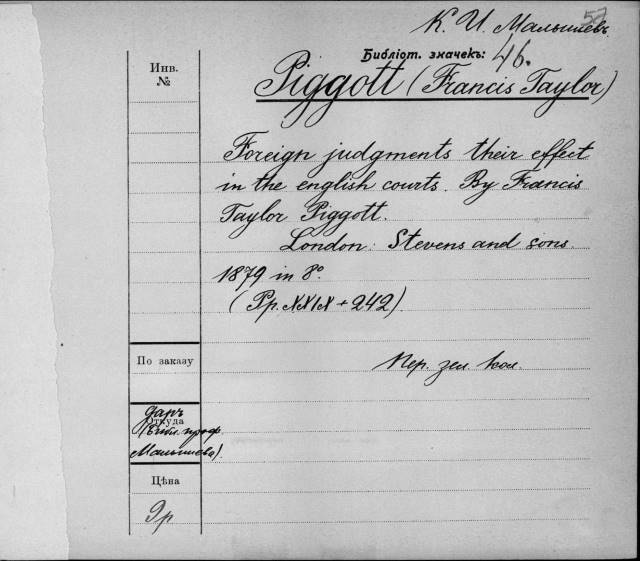 57
К. И. Малышевъ
Библіот. значекъ: 46.
Инв.
№
Piggott (Francis Taylor)
Foreign judgments their effect
in the english courts. By Francis
Taylor Piggott.
London: Stevens and sons.
1879 in 8º
(Pp. XXIX + 242)
По заказу
Пер. зел. кол.
Откуда
даръ
(библ. проф.
Малышева).
Цѣна
9р